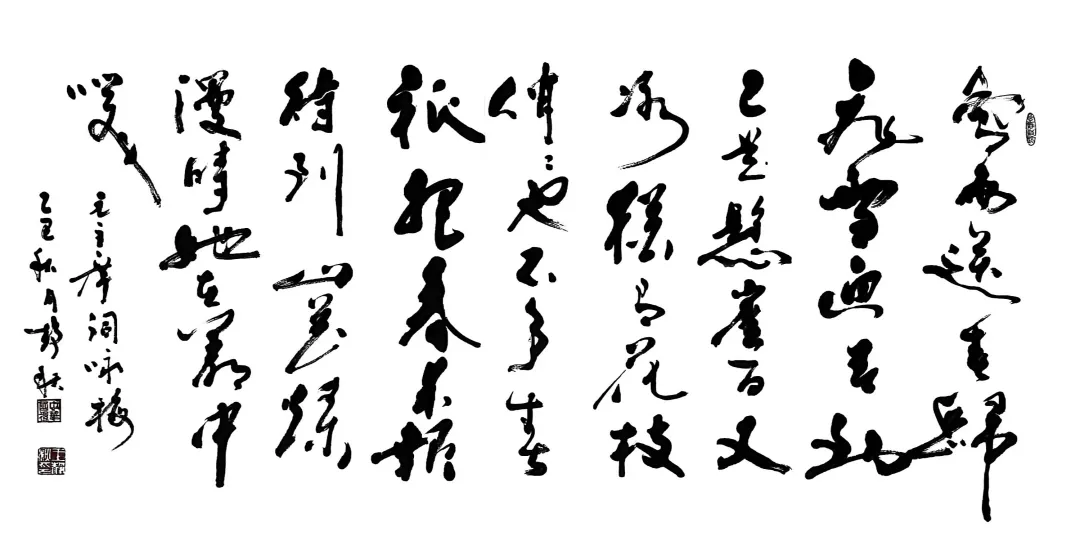 風雨送春歸
飛雪迎春到
已是懸崖百丈
冰猶有花枝
俏〻也不爭春
祇把春來報
待到山花爛
漫時她在叢中
笑
毛主席词咏梅
乙丑秋月